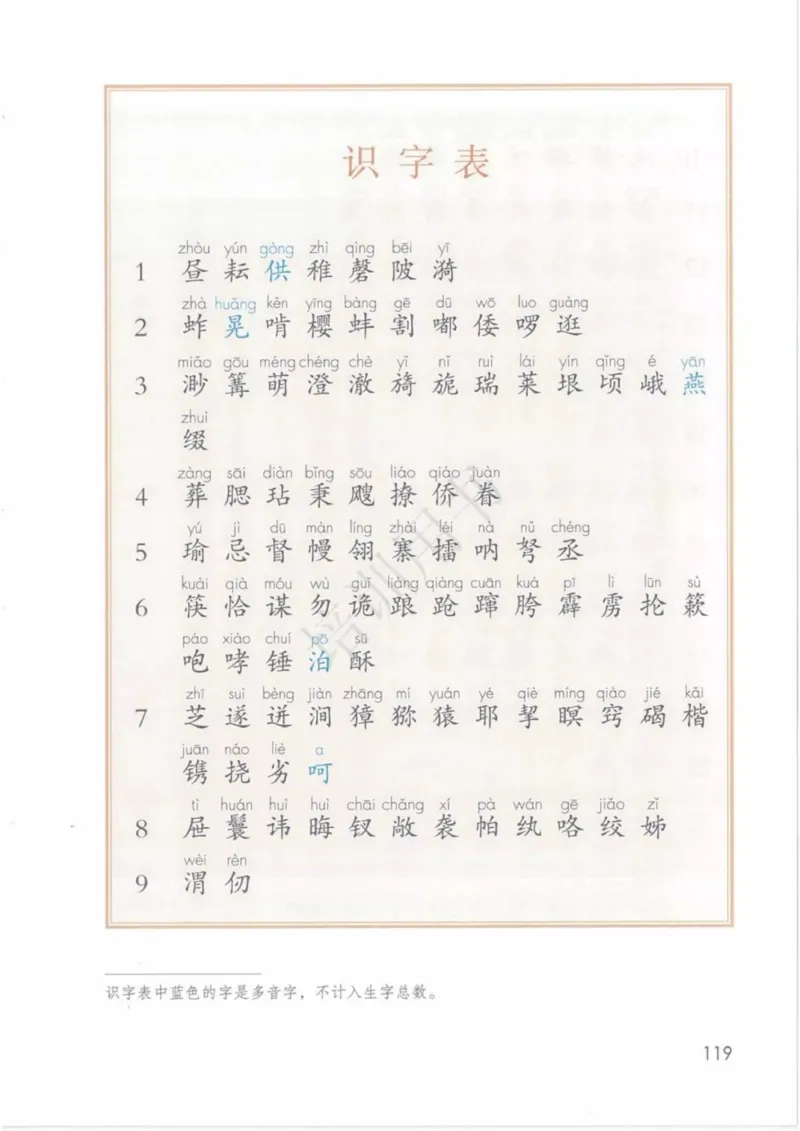 识字表
zhòu yún gòng zhì qìng bēi yī
1 昼 耘 供 稚 磬 陂 漪
zhà huǎng kěn yīng bàng gē dū wō luo guàng
2 蚱 晃 啃 樱 蚌 割 嘟 倭 啰 逛
miǎo gōu méng chéng chè yǐ nǐ ruì lái yín qǐng é yān
3 渺 篝 萌 澄 澈 旖 旎 瑞 莱 垠 顷 峨 燕
zhuì
缀
zàng sāi diàn bǐng sōu liáo qiáo juàn
4 葬 腮 玷 秉 飕 撩 侨 眷
yú jì dū màn líng zhài léi nà nǔ chéng
5 瑜 忌 督 幔 翎 寨 擂 呐 弩 丞
kuài qià móu wù guǐ liàng qiàng cuān kuà pī lì lūn sù
6 筷 恰 谋 勿 诡 踉 跄 蹿 胯 霹 雳 抡 簌
páo xiào chuí pō sū
咆 哮 锤 泊 酥
zhī suì bèng jiàn zhāng mí yuán yé qiè míng qiào jié kǎi
7 芝 遂 迸 涧 獐 猕 猿 耶 挈 暝 窍 碣 楷
juān náo liè a
镌 挠 劣 呵
tì huán huì huì chāi chǎng xí pà wán gē jiǎo zǐ
8 屉 鬟 讳 晦 钗 敞 袭 帕 纨 咯 绞 姊
wèi rèn
9 渭 仞
培训用书
识字表中蓝色的字是多音字，不计入生字总数。
119